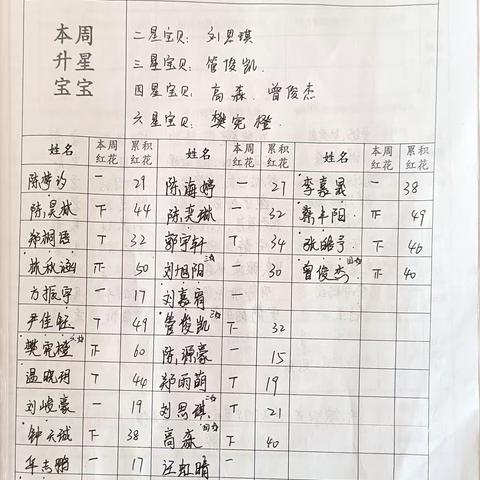 本周 二星宝贝: 刘思琪
升星 三星宝贝: 管俊凯.
宝宝 四星宝贝: 高森. 曾俊杰
六星宝贝: 樊宛橙.
姓名 本周红花 累积红花 姓名 本周红花 累积红花 姓名 本周红花 累积红花
陈梦 一 29 陈海婷 一 27 李嘉晟 一 38
陈昊林 下 44 陈奕琳 一 32 蔡丰阳 下 49
郑湘语 T 32 郭宇轩 T 34 张皓 下 46
陈秋涵 正 50 刘旭阳 一 30 曾俊杰 四 下 40
方振宇 一 17 刘嘉宥 一
尹佳钰 T 49 管俊凯 三 下 32
樊宛橙 六 正 60 陈源豪 一 15
温晓玥 T 44 郑雨萌 T 19
刘峻豪 一 19 刘思琪 二 T 21
钟天诚 下 38 高森 四 下 40
牟志鹏 一 17 汪虹晴 一